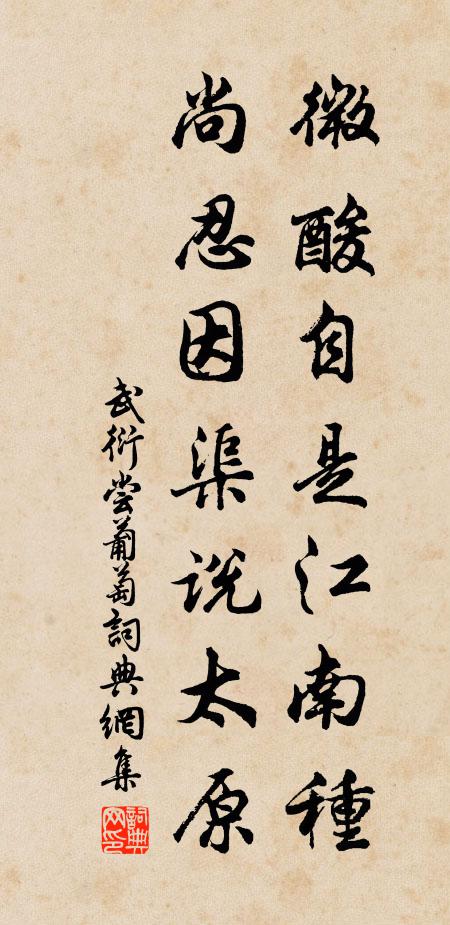 微酸自是江南種
尚忍因渠說太原
武衍嘗葡萄詞典網集
詞典網印